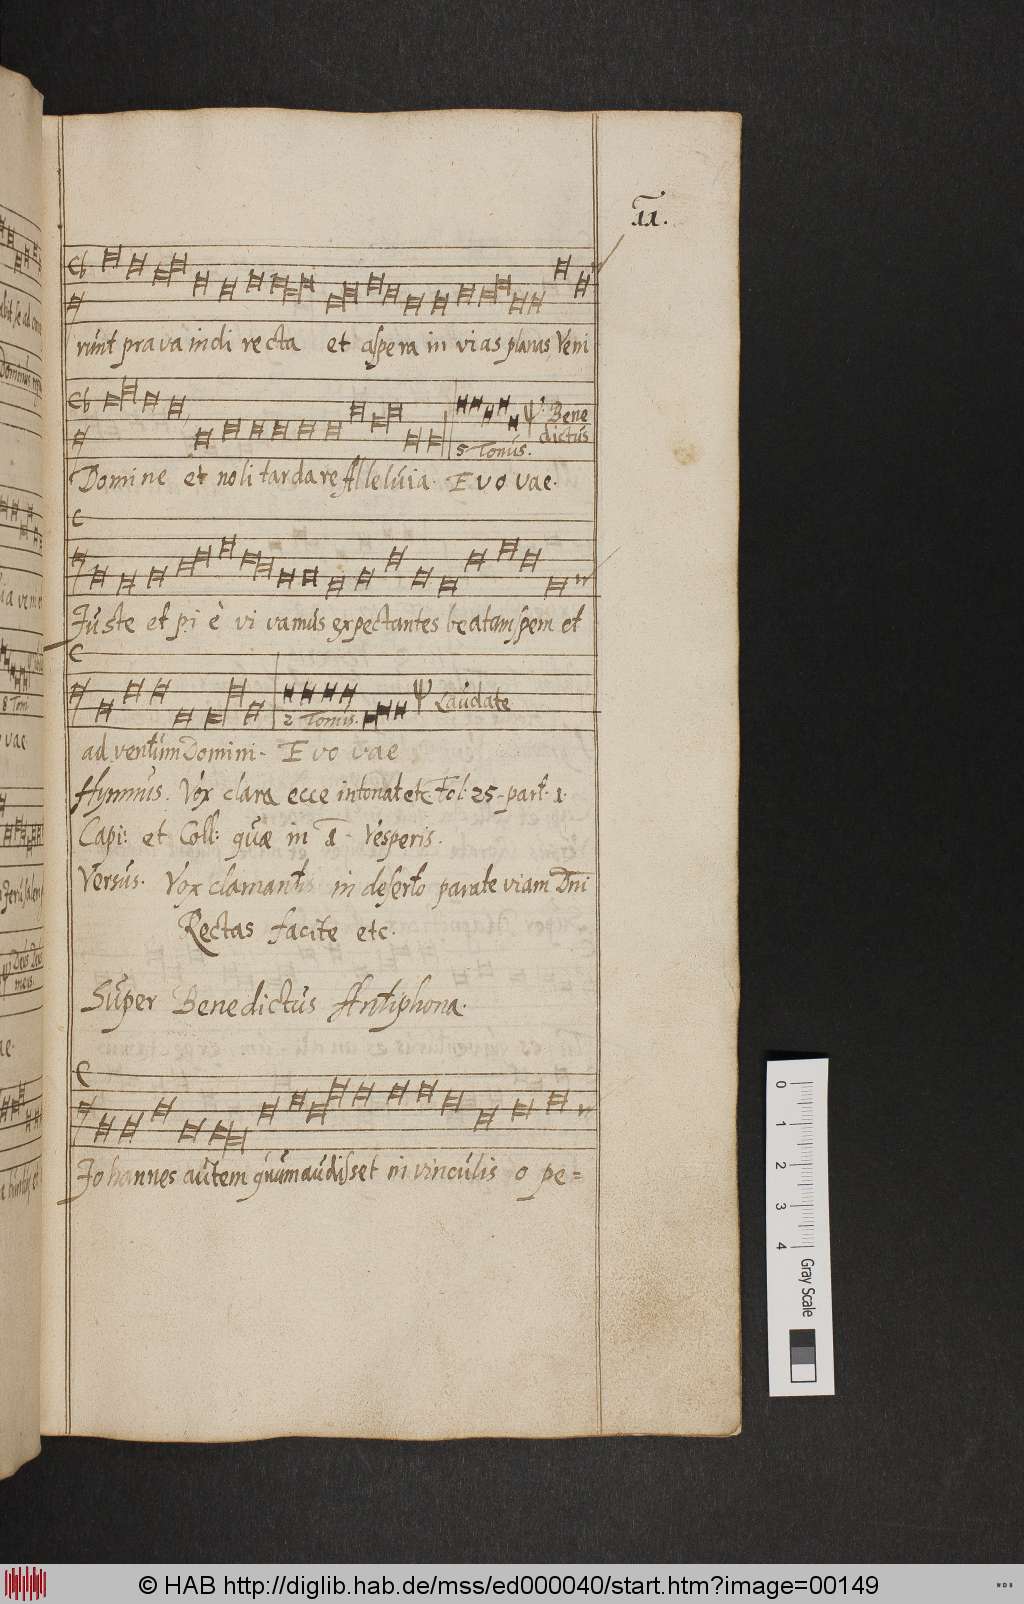 11.
runt prava in di recta et aspera in vias planas, Veni
Ψ. Bene
dictus
5 Tonus.
Domine et noli tardare Alleluia. E v o vae.
Juste et pi è vi vamus expectantes beatam spem et
2 Tonus.
Ψ Laudate
ad ventum Domini. E v o vae
Hymnus. Vox clara ecce intonat etc Fol. 25. part. 1.
Capi: et Coll: quæ in 1. Vesperis.
Versus. Vox clamantis in deserto parate viam Dni
Rectas facite etc.
Super Benedictus Antiphona.
Jo hannes autem quum audisset in vinculis o pe=
0 1 2 3 4 Gray Scale
© HAB http://diglib.hab.de/mss/ed000040/start.htm?image=00149